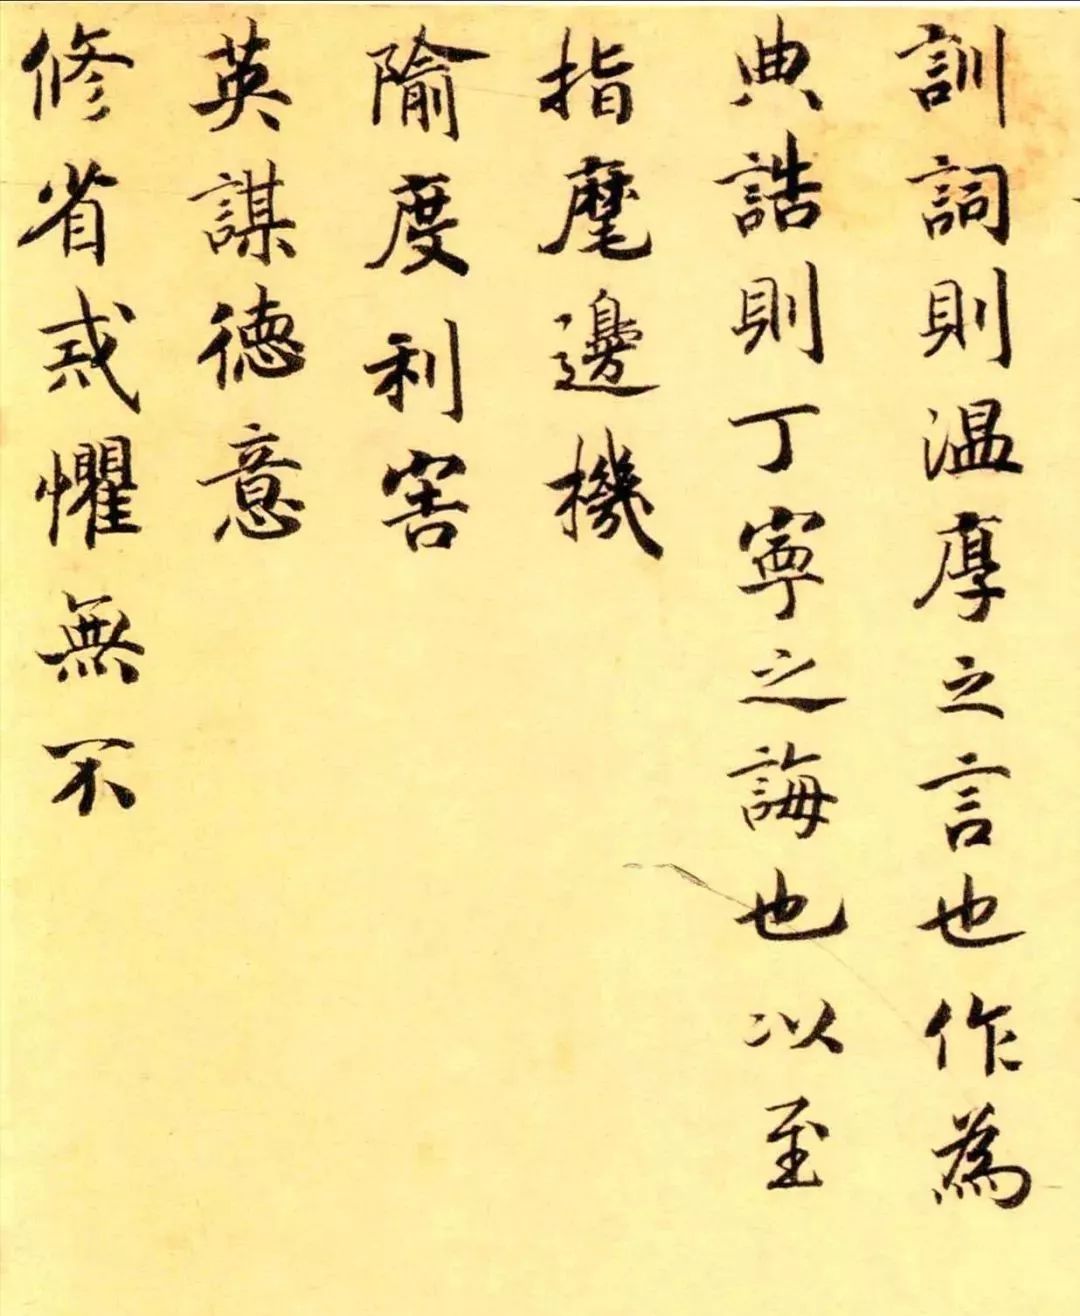 訓詞則温厚之言也作為
典誥則丁寧之誨也以至
指麾邊機
隃度利害
英謀德意
修省戒懼無不